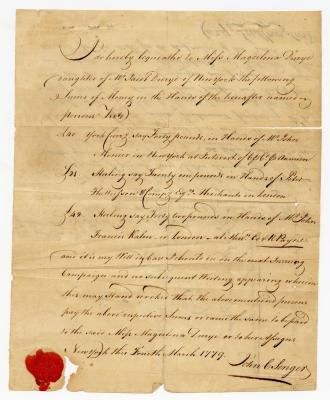 I do hereby bequeathe to Miss Magdelina Durye
daughter of Mr. Jacob Durye of New York the following
Sums of Money in the Hands of the hereafter named
persons Viz)
£40 York Curry. Say Forty pounds, in Hands of Mr. John
in New York at Interest of 6 pCt. Annum
£21 Sterling say Twenty one pounds in Hands of Peter
& Comp. Esqrs. Merchants in London
£42 Sterling say Forty two pounds in Hands of Mr. John
Francis in London at Messrs. & R Payne
and it is my Will if by Law I should be in the next
Campaign and no subsequent Writing appearing wherein
this may stand revoked that the abovementioned persons
pay the above respective Sums or cause the same to be paid
to the said Miss Magdelina Durye or to her Assigns
New York this Fourth March 1779.
John C.